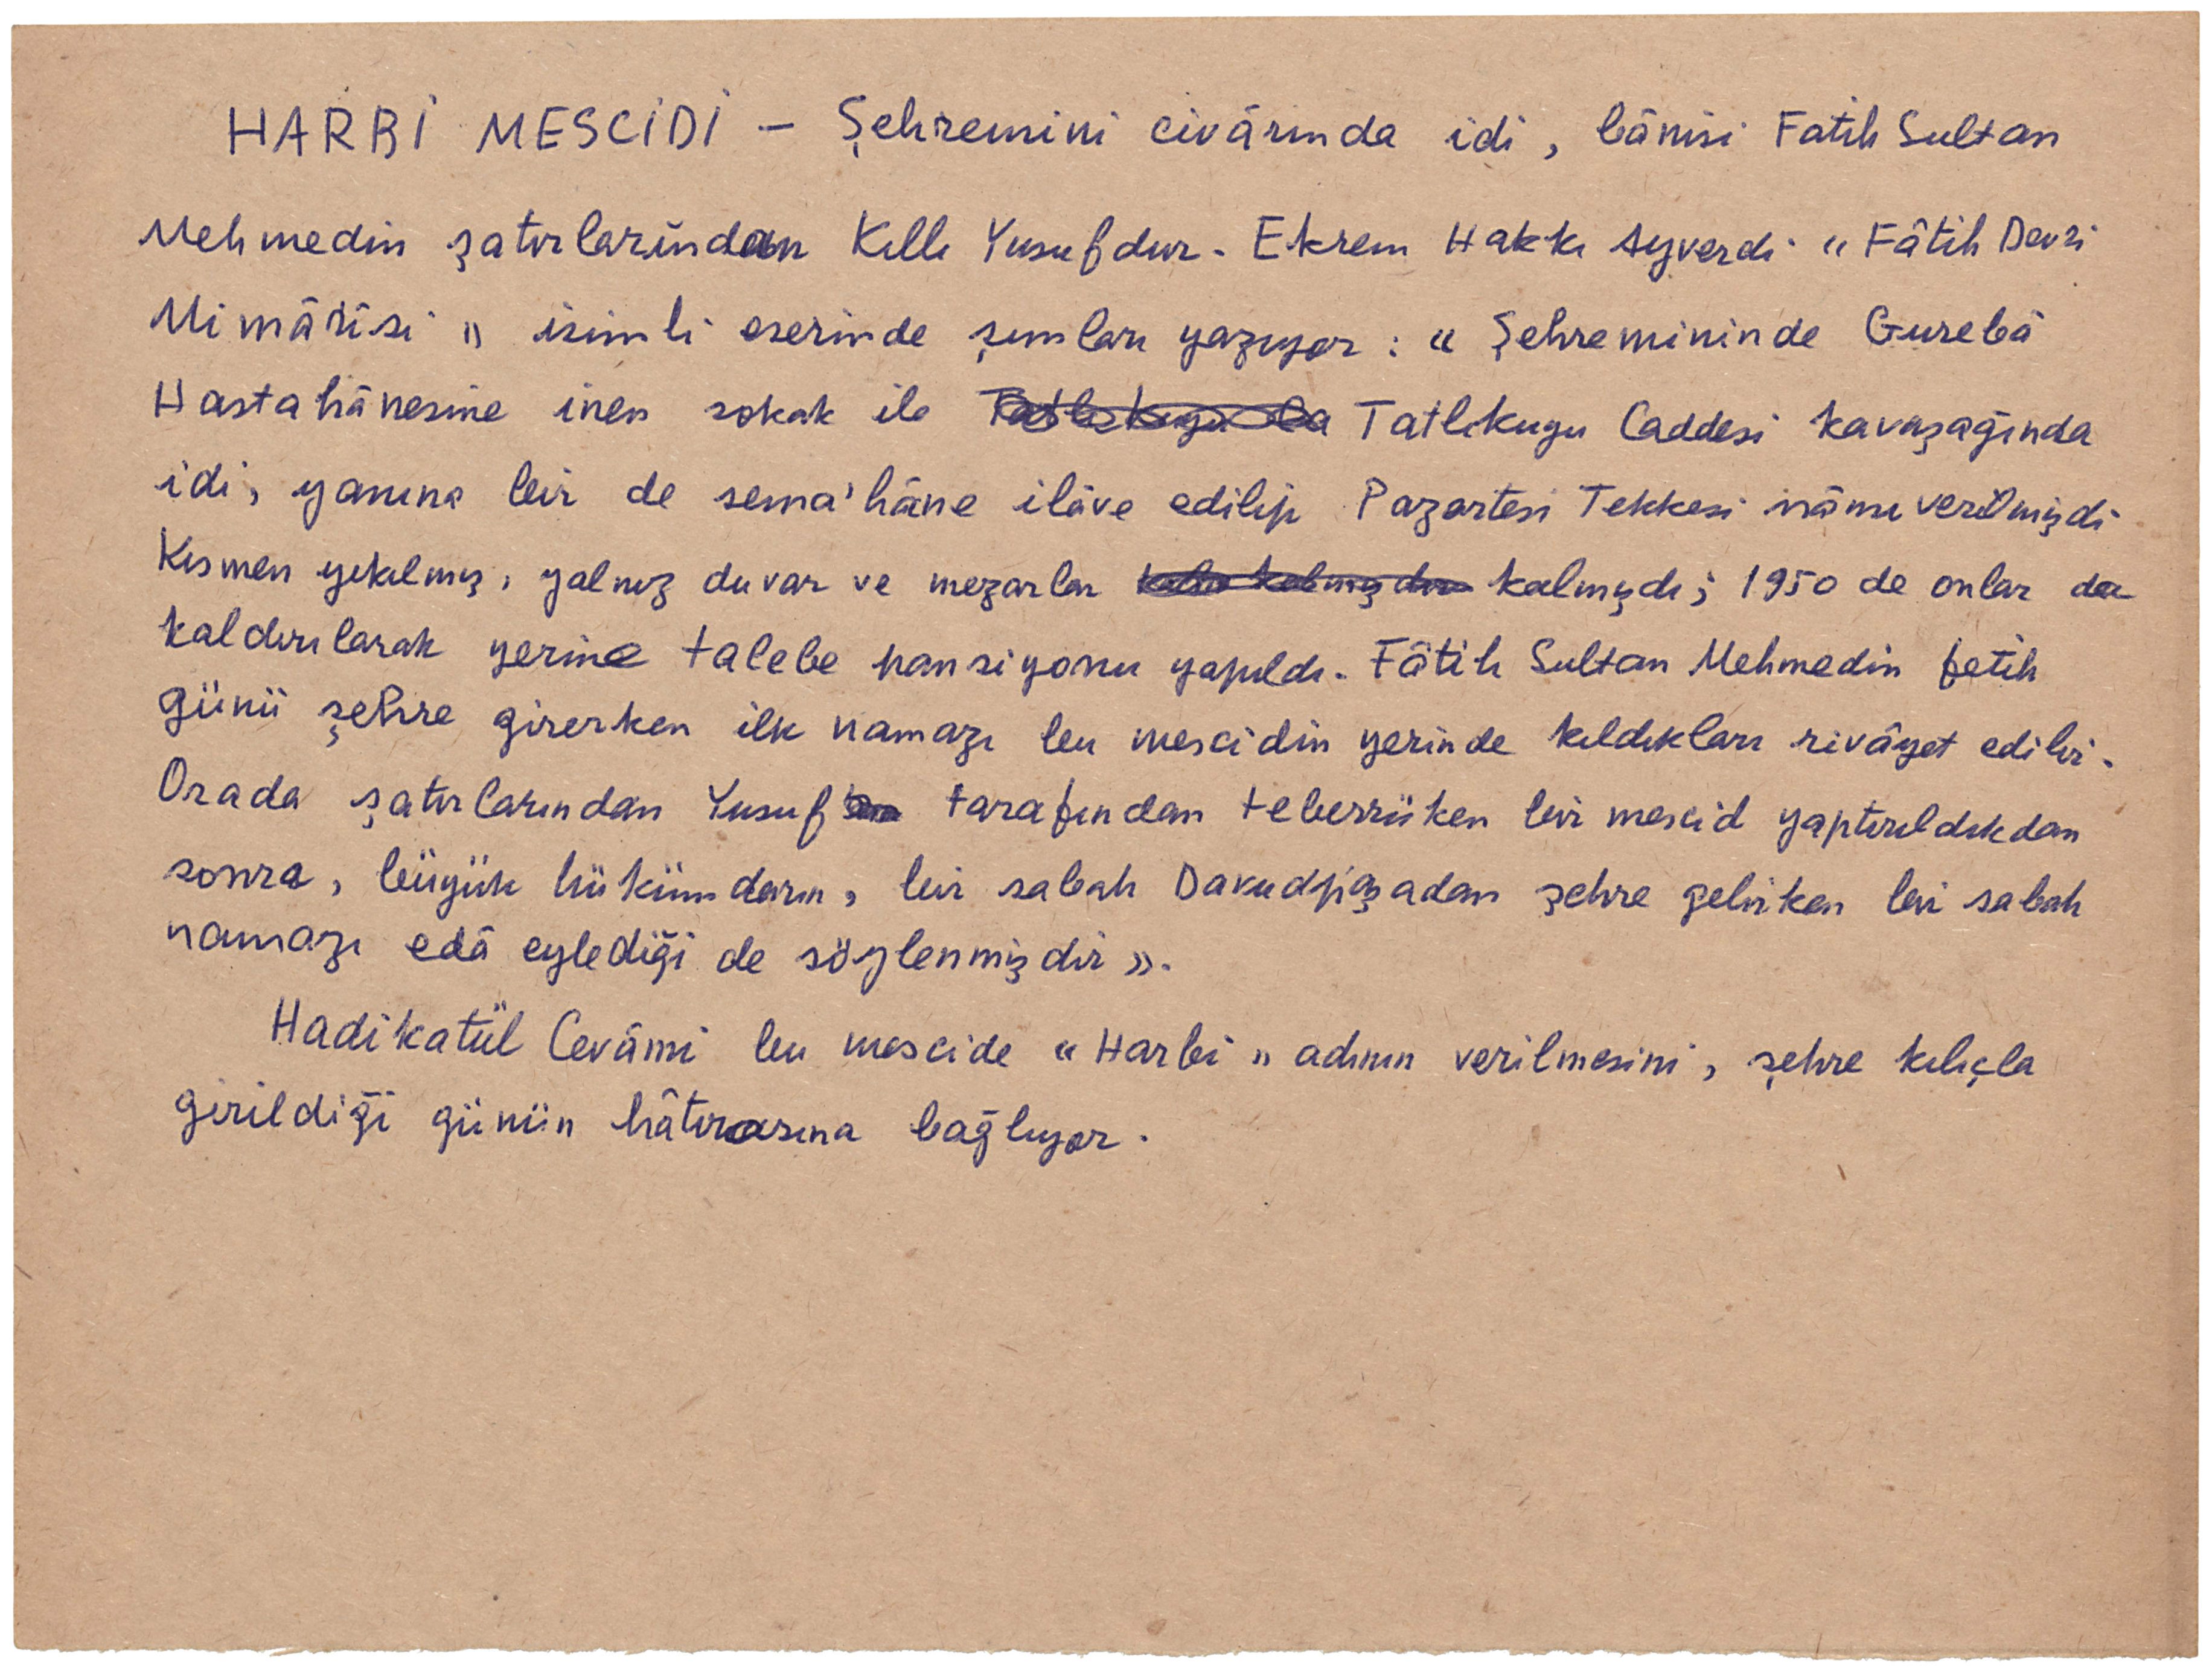 HARBİ MESCİDİ – Şehremini civârında idi, bânisi Fatih Sultan
Mehmedin şatırlarından Kıllı Yusufdur. Ekrem Hakkı Ayverdi « Fâtih Devri
Mimârîsi » isimli eserinde şunları yazıyor : « Şehremininde Gurebâ
Hastahânesine inen sokak ile Tatlıkuyu Caddesi kavuşağında
idi, yanına bir de sema'hâne ilâve edilip Pazartesi Tekkesi nâmı verilmişdi
Kısmen yıkılmış, yalnız duvar ve mezarlar kalmışdı; 1950 de onlar da
kaldırılarak yerine talebe pansiyonu yapıldı. Fâtih Sultan Mehmedin fetih
günü şehre girerken ilk namazı bu mescidin yerinde kıldıkları rivâyet edilir.
Orada şatırlarından Yusuf tarafından teberrüken bir mescid yaptırıldıkdan
sonra, büyük hükümdarın, bir sabah Davudpaşadan şehre gelirken bir sabah
namazı edâ eylediği de söylenmişdir ».
Hadikatül Cevâmi bu mescide « Harbi » adının verilmesini, şehre kılıçla
girildiği günün hâtırasına bağlıyor.